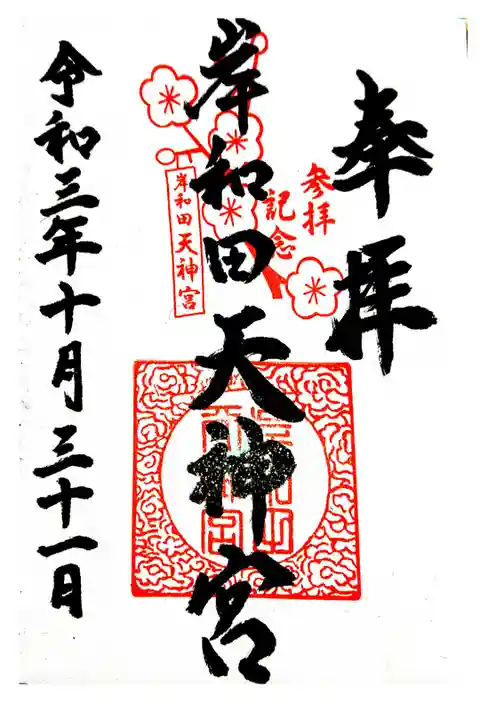 奉拝
参拝
記念
岸和田天神宮
岸和田天神宮
令和三年十月三十一日